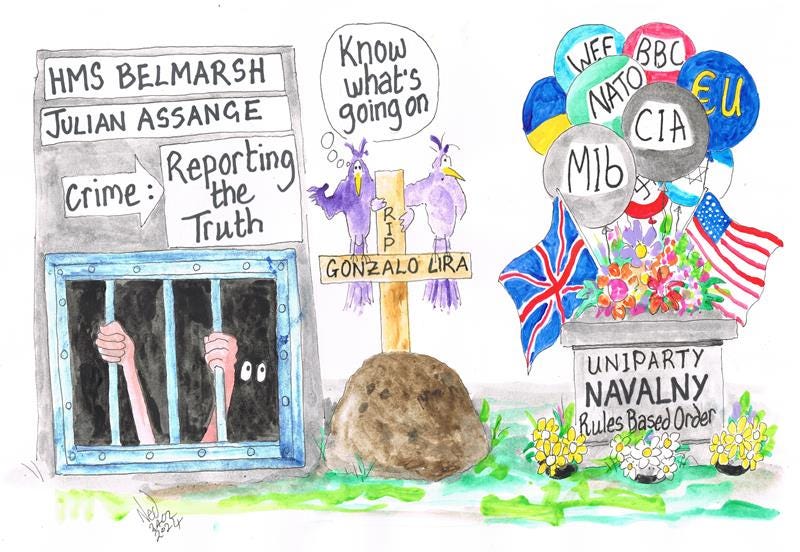 HMS BELMARSH
JULIAN ASSANGE
Crime:
Reporting
the
Truth
Know
what's
going on
RIP
GONZALO LIRA
WEF
BBC
NATO
EU
CIA
MI6
UNIPARTY
NAVALNY
Rules Based Order
2024